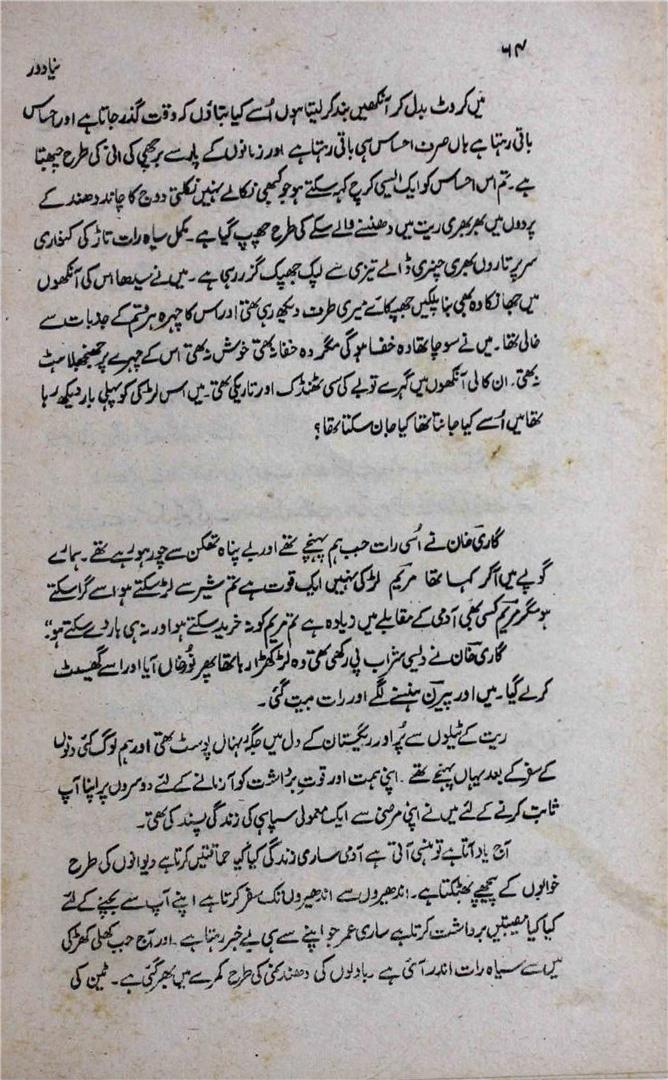 ۶۴
نیا دور
میں کروٹ بدل کر آنکھیں بند کر لیتا ہوں اُسے کیا بتاؤں کہ وقت گذر جاتا ہے اور احساس
باقی رہتا ہے ہاں صرف احساس ہی باقی رہتا ہے اور زمانوں کے پار سے برچھی کی انی کی طرح چبھتا
ہے۔ تم اس احساس کو ایک ایسی کرچ کہہ سکتے ہو جو کبھی نکالے نہیں نکلتی دوج کا چاند دھند کے
پردوں میں بھر بھری ریت میں دھنسنے والے سکے کی طرح چھپ گیا ہے۔ مکمل سیاہ رات تاڑ کی کنواری
سر پر تاروں بھری چنری ڈالے تیزی سے لپک جھپک گزر رہی ہے۔ میں نے سیدھا اس کی آنکھوں
میں جھانکا وہ بھی بنا پلکیں جھپکائے میری طرف دیکھ رہی تھی اور اس کا چہرہ ہر قسم کے جذبات سے
خالی تھا۔ میں نے سوچا تھا وہ خفا ہوگی مگر وہ خفا نہ تھی خوش نہ تھی اس کے چہرے پر جھنجھلاہٹ
نہ تھی۔ ان کالی آنکھوں میں گہرے توبے کی سی ٹھنڈک اور تاریکی تھی۔ میں اس لڑکی کو پہلی بار دیکھ رہا
تھا میں اُسے کیا جانتا تھا کیا جان سکتا تھا؟
گاری خان نے اُسی رات جب ہم پہنچے تھے اور بے پناہ تھکن سے چور ہو رہے تھے۔ ہمارے
گوپے میں آکر کہا تھا مریم لڑکی نہیں ایک قوت ہے تم شیر سے لڑ سکتے ہو اسے گرا سکتے
ہو مگر مریم کسی بھی آدمی کے مقابلے میں زیادہ ہے تم مریم کو نہ خرید سکتے ہو اور نہ ہی ہار دے سکتے ہو"۔
گاری خان نے دیسی شراب پی رکھی تھی وہ لڑکھڑا رہا تھا پھر نور خاں آیا اور اسے گھسیٹ
کر لے گیا۔ میں اور پیرن ہنسنے لگے اور رات بیت گئی۔
ریت کے ٹیلوں سے پُر اور ریگستان کے دل میں جگہ پوسٹ تھی اور ہم لوگ کئی دنوں
کے سفر کے بعد یہاں پہنچے تھے۔ اپنی ہمت اور قوتِ برداشت کو آزمانے کے لئے دوسروں پر اپنا آپ
ثابت کرنے کے لئے میں نے اپنی مرضی سے ایک معمولی سپاہی کی زندگی پسند کی تھی۔
آج یاد آتا ہے تو ہنسی آتی ہے آدمی ساری زندگی کیا کیا حماقتیں کرتا ہے دیوانوں کی طرح
خوابوں کے پیچھے بھٹکتا ہے۔ اندھیروں سے اندھیروں تک سفر کرتا ہے اپنے آپ سے بچنے کے لئے
کیا کیا مصیبتیں برداشت کرتا ہے ساری عمر جو اپنے سے ہی بے خبر رہتا ہے۔ اور آج جب کھلی کھڑکی
میں سے سیاہ رات اندر آئی ہے۔ بادلوں کی دھند کی طرح کمرے میں بھر گئی ہے۔ ٹین کی